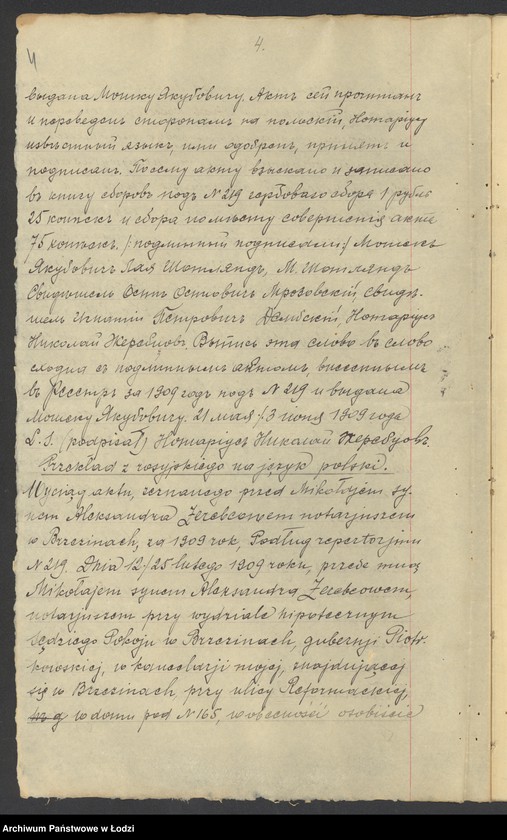 4.
4
выдана Мошку Якубовичу. Актъ сей прочитанъ
и переведенъ сторонамъ на польскій, Нотаріусу
извѣстный языкъ, ими одобренъ, принятъ и
подписанъ. По сему акту взыскано и записано
въ книгу сборовъ подъ N 219 гербоваго сбора 1 рубль
25 копѣекъ и сбора по мѣсту совершенія акта
75 копѣекъ. /:подлинный подписали:/ Мошекъ
Якубовичъ Лая Шотляндъ, М. Шотляндъ
Свидѣтель Осипъ Осиповичъ Мрозовскій, Свидѣ-
тель Игнатій Петровичъ Дембскій, Нотаріусъ
Николай Жеребцовъ. Выпись эта слово въ слово
сходна съ подлиннымъ актомъ, внесеннымъ
въ Реестръ за 1909 годъ подъ N 219 и выдана
Мошеку Якубовичу. 21 мая /:3 іюня 1909 года
L. S. (подписалъ) Нотаріусъ Николай Жеребцовъ.
Przekład z rosyjskiego na język polski.
Wyciąg aktu, zeznanego przed Mikołajem sy-
nem Aleksandra Żerebcowem notarjuszem
w Brzezinach, za 1909 rok, Podług repertorjum
N 219. Dnia 12/25 lutego 1909 roku, przede mną
Mikołajem synem Aleksandra Żerebcowem,
notarjuszem przy wydziale hipotecznym
Sędziego Pokoju w Brzezinach, gubernji Piotr-
kowskiej, w kancelarji mojej, znajdującej
się w Brzezinach przy ulicy Reformackiej,
w domu pod N 165, w obecności osobiście
Archiwum Państwowe w Łodzi